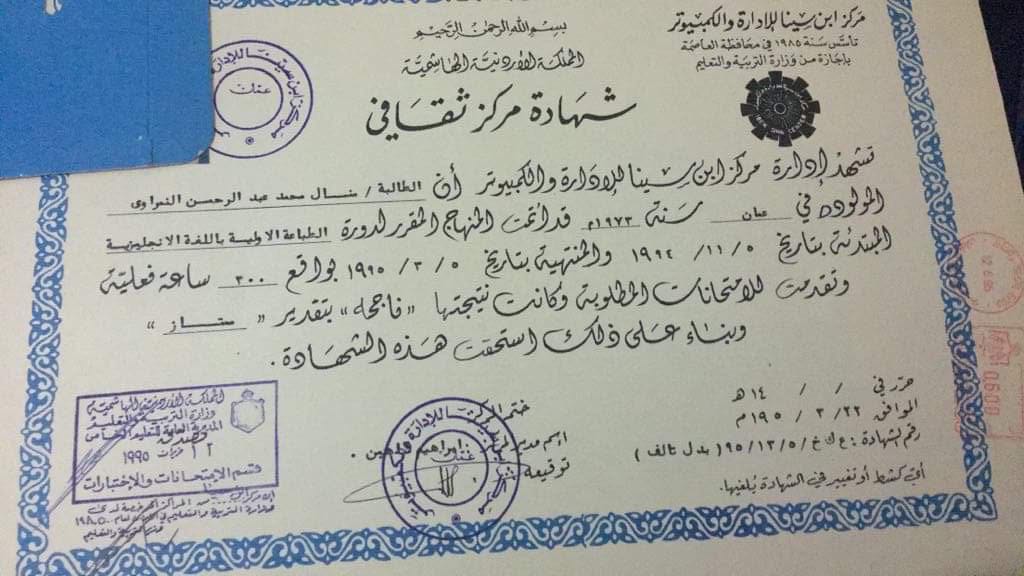 مركز ابن سينا للإدارة والكمبيوتر
تأسس سنة ١٩٨٥ في محافظة العاصمة
بإجازة من وزارة التربية والتعليم
بسم الله الرحمن الرحيم
المملكة الأردنية الهاشمية
شهادة مركز ثقافي
عمان
تشهد إدارة مركز ابن سينا للإدارة والكمبيوتر أن الطالبة / منال محمد عبد الرحمن
المولوده في عمان سنة ١٩٧٣م قد أتمت المنهاج المقرر لدورة الطباعة الاولية باللغة الانجليزية
المبتدئة بتاريخ ٥ / ١١ / ١٩٩٤ والمنتهية بتاريخ ٥ / ٣ / ١٩٩٥ بواقع ٣٠٠ ساعة فعلية
وتقدمت للامتحانات المطلوبة وكانت نتيجتها «ناجحه» بتقدير « ممتاز »
وبناء على ذلك استحقت هذه الشهادة.
حرر في / / ١٤ هـ
الموافق ٢٢ / ٣ / ١٩٥م
رقم الشهادة : ع ك خ / ٥ / ١٣ / ٩٥ ( بدل تالف )
أي كشط أو تغيير في الشهادة يلغيها.
ختم المركز
اسم مدير ابراهيم
توقيعه
المملكة الأردنية الهاشمية
وزارة التربية والتعليم
المديرية العامة للتعليم الخاص
١٩٩٥
قسم الامتحانات والاختبارات